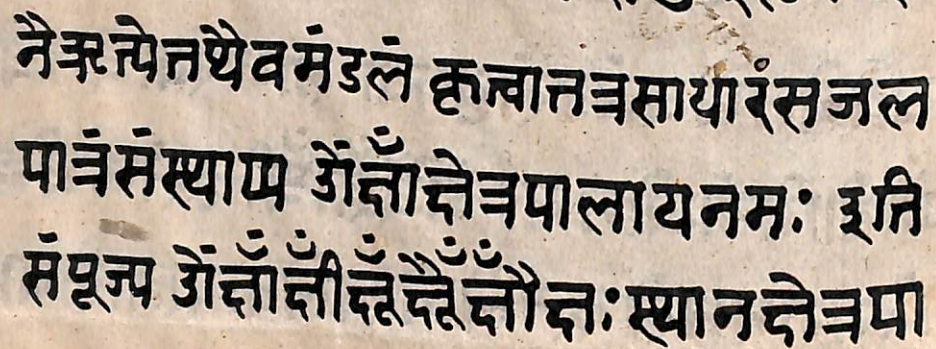 नैऋत्येत्तथैवमंडलं कृत्वात्तत्रसाधारंसजल
पात्रंसंस्थाप्य ॐक्षाँक्षेत्रपालायनमः इति
संपूज्य ॐक्षाँक्षीँक्षूँक्षैँक्षौँक्षः स्थानक्षेत्रपा